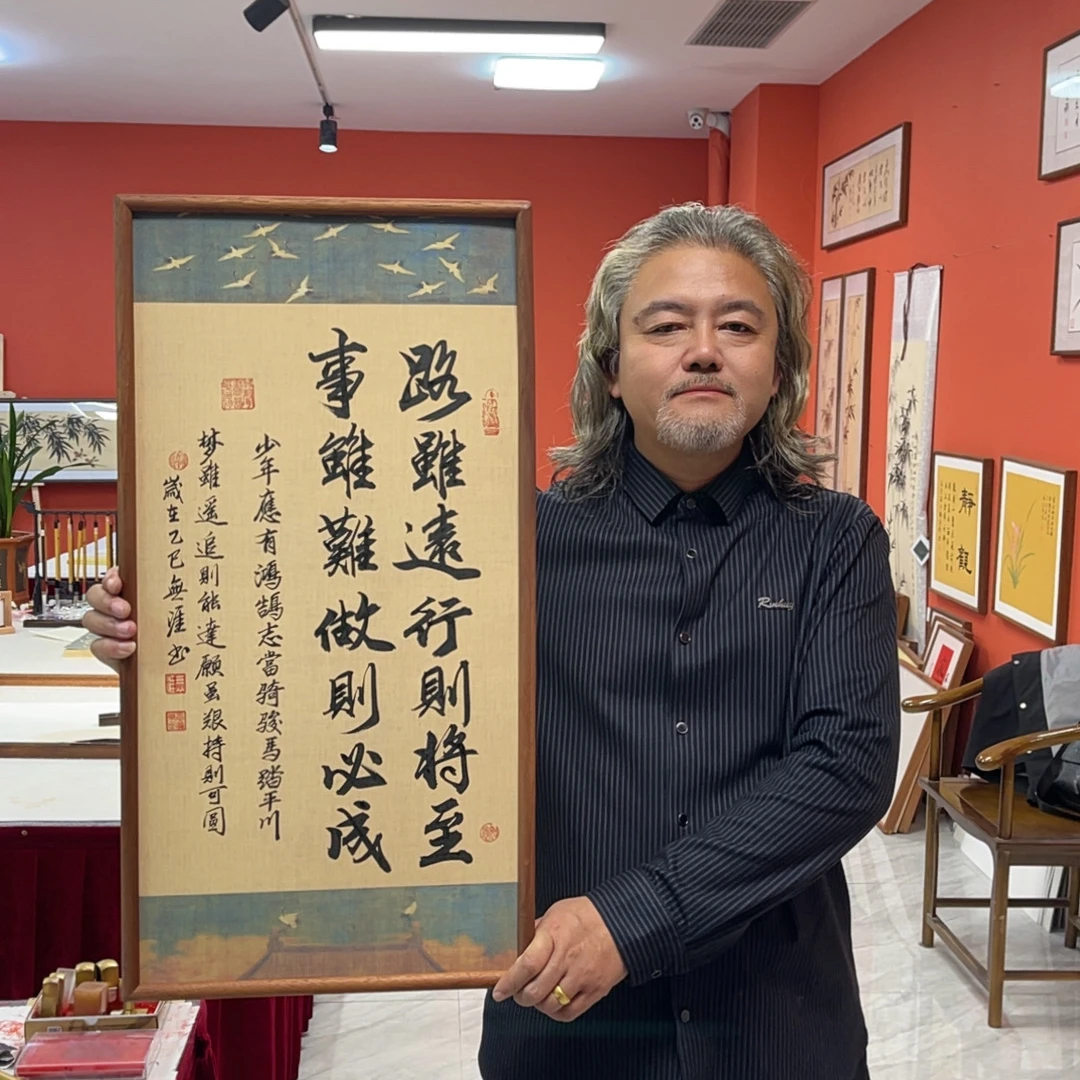 路雖遠行則將至
事雖難做則必成
少年應有鴻鵠志當騎駿馬踏平川
梦雖遥追則能達願虽艰持則可圓
嵗在乙巳無涯书
靜觀